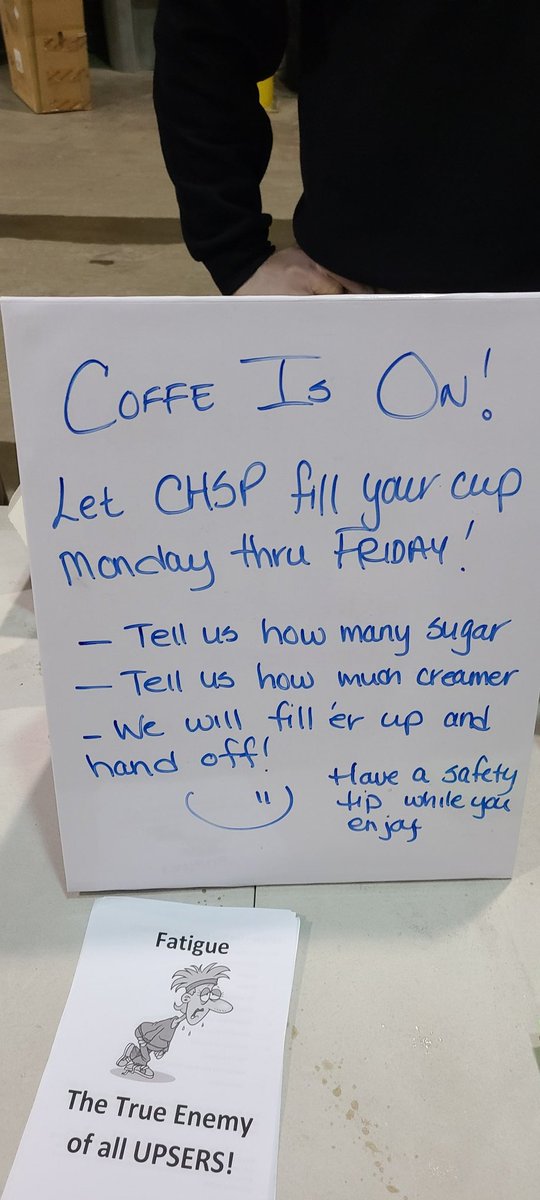 COFFE IS ON!
Let CHSP fill your cup
Monday thru FRIDAY!
- Tell us how many sugar
- Tell us how much creamer
- We will fill 'er up and
hand off!
Have a safety
tip while you
enjoy
Fatigue
The True Enemy
of all UPSERS!